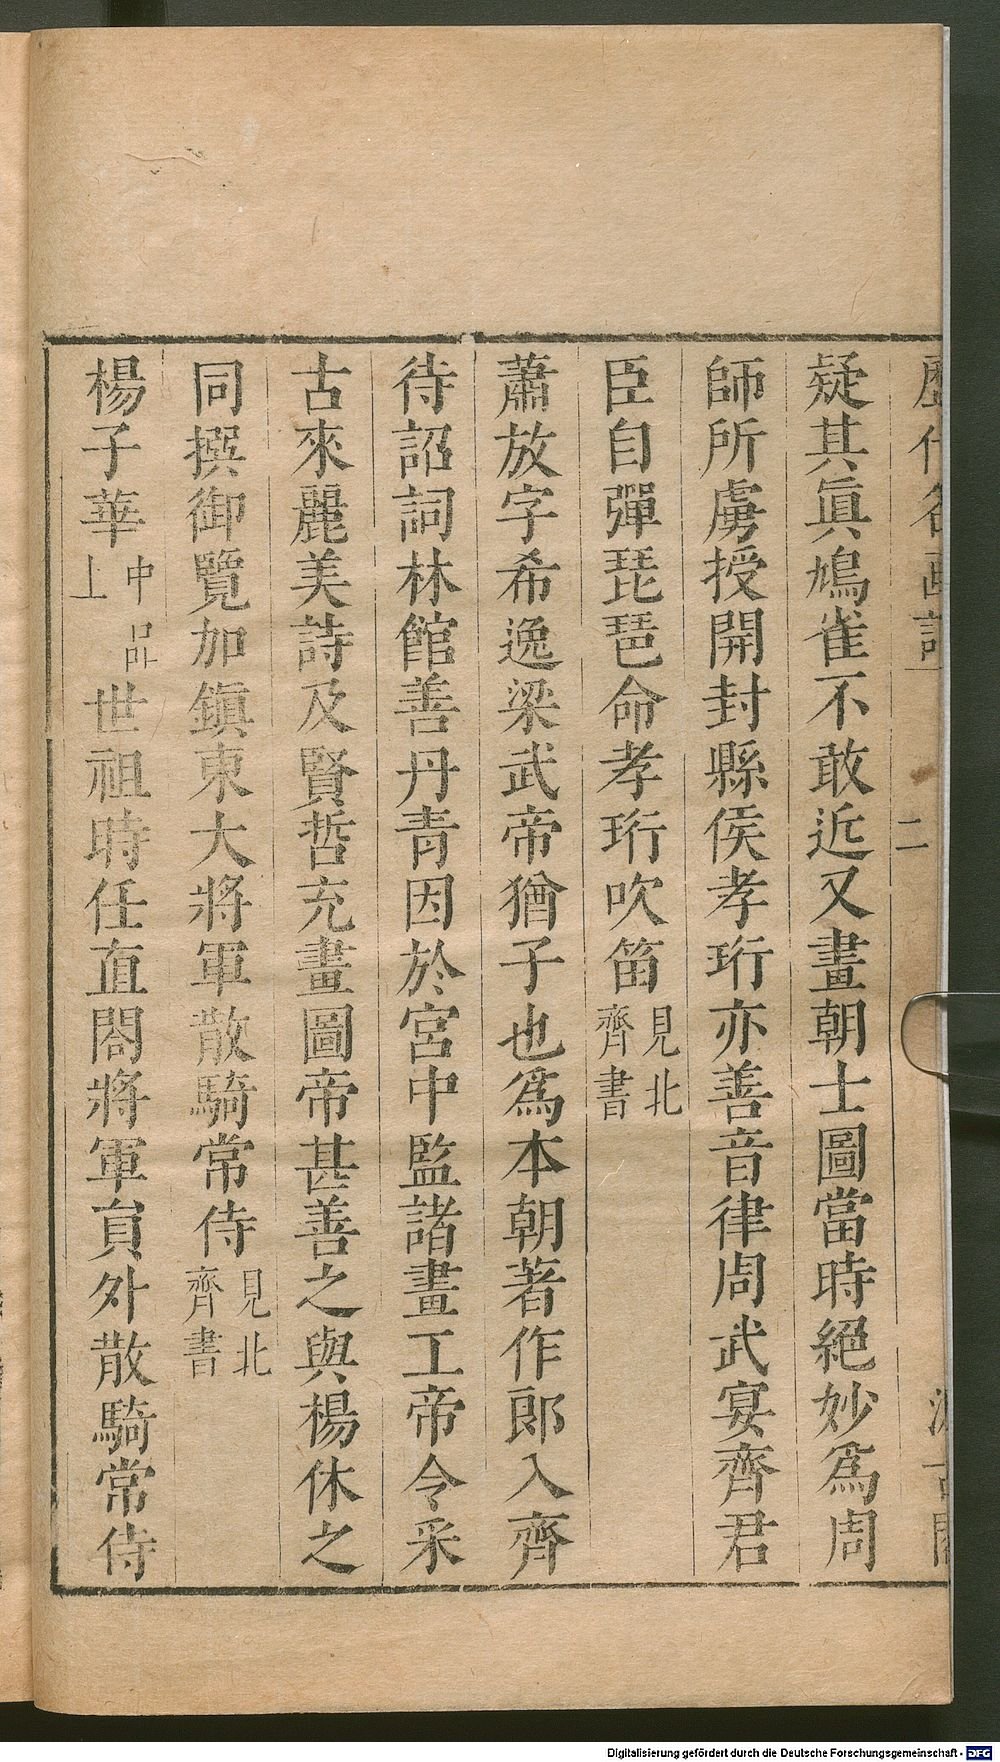 歷代名画記 二
疑其眞鳩雀不敢近又畫朝士圖當時絕妙爲周
師所虜授開封縣侯孝珩亦善音律周武宴齊君
臣自彈琵琶命孝珩吹笛見北齊書
蕭放字希逸梁武帝猶子也爲本朝著作郎入齊
待詔詞林館善丹青因於宮中監諸畫工帝令采
古來麗美詩及賢哲充畫圖帝甚善之與楊休之
同撰御覽加鎭東大將軍散騎常侍見北齊書
楊子華中品上世祖時任直閤將軍貟外散騎常侍
Digitalisierung gefördert durch die Deutsche Forschungsgemeinschaft - DFG